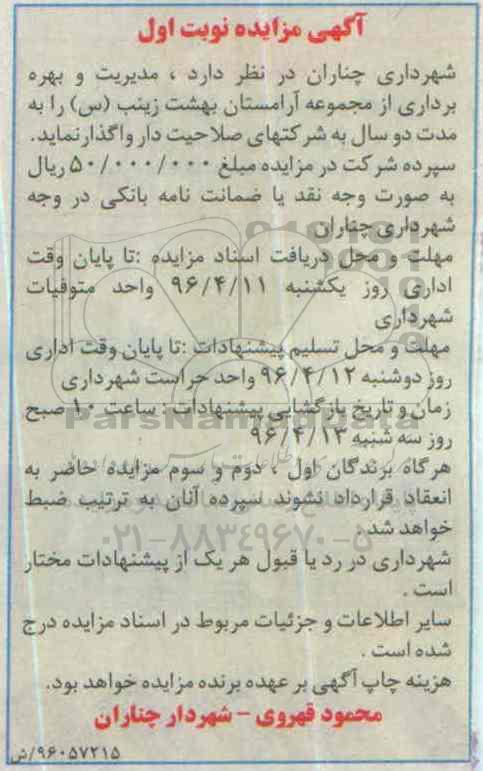 آگهی مزایده نوبت اول
شهرداری چناران در نظر دارد ، مدیریت و بهره
برداری از مجموعه آرامستان بهشت زینب (س) را به
مدت دو سال به شرکتهای صلاحیت دار واگذارنماید.
سپرده شرکت در مزایده مبلغ ۵۰/۰۰۰/۰۰۰ ریال
به صورت وجه نقد یا ضمانت نامه بانکی در وجه
شهرداری چناران
مهلت و محل دریافت اسناد مزایده :تا پایان وقت
اداری روز یکشنبه ۹۶/۴/۱۱ واحد متوفیات
شهرداری
مهلت و محل تسلیم پیشنهادات :تا پایان وقت اداری
روز دوشنبه ۹۶/۴/۱۲ واحد حراست شهرداری
زمان و تاریخ بازگشایی پیشنهادات : ساعت ۱۰ صبح
روز سه شنبه ۹۶/۴/۱۳
ParsNamadData
هرگاه برندگان اول ، دوم و سوم مزایده حاضر به
انعقاد قرارداد نشوند سپرده آنان به ترتیب ضبط
خواهد شد.
۰۲۱-۸۸۳۴۹۶۷۰-۵
شهرداری در رد یا قبول هر یک از پیشنهادات مختار
است .
سایر اطلاعات و جزئیات مربوط در اسناد مزایده درج
شده است .
هزینه چاپ آگهی بر عهده برنده مزایده خواهد بود.
محمود قهروی - شهردار چناران
۹۶۰۵۷۲۱۵/ش